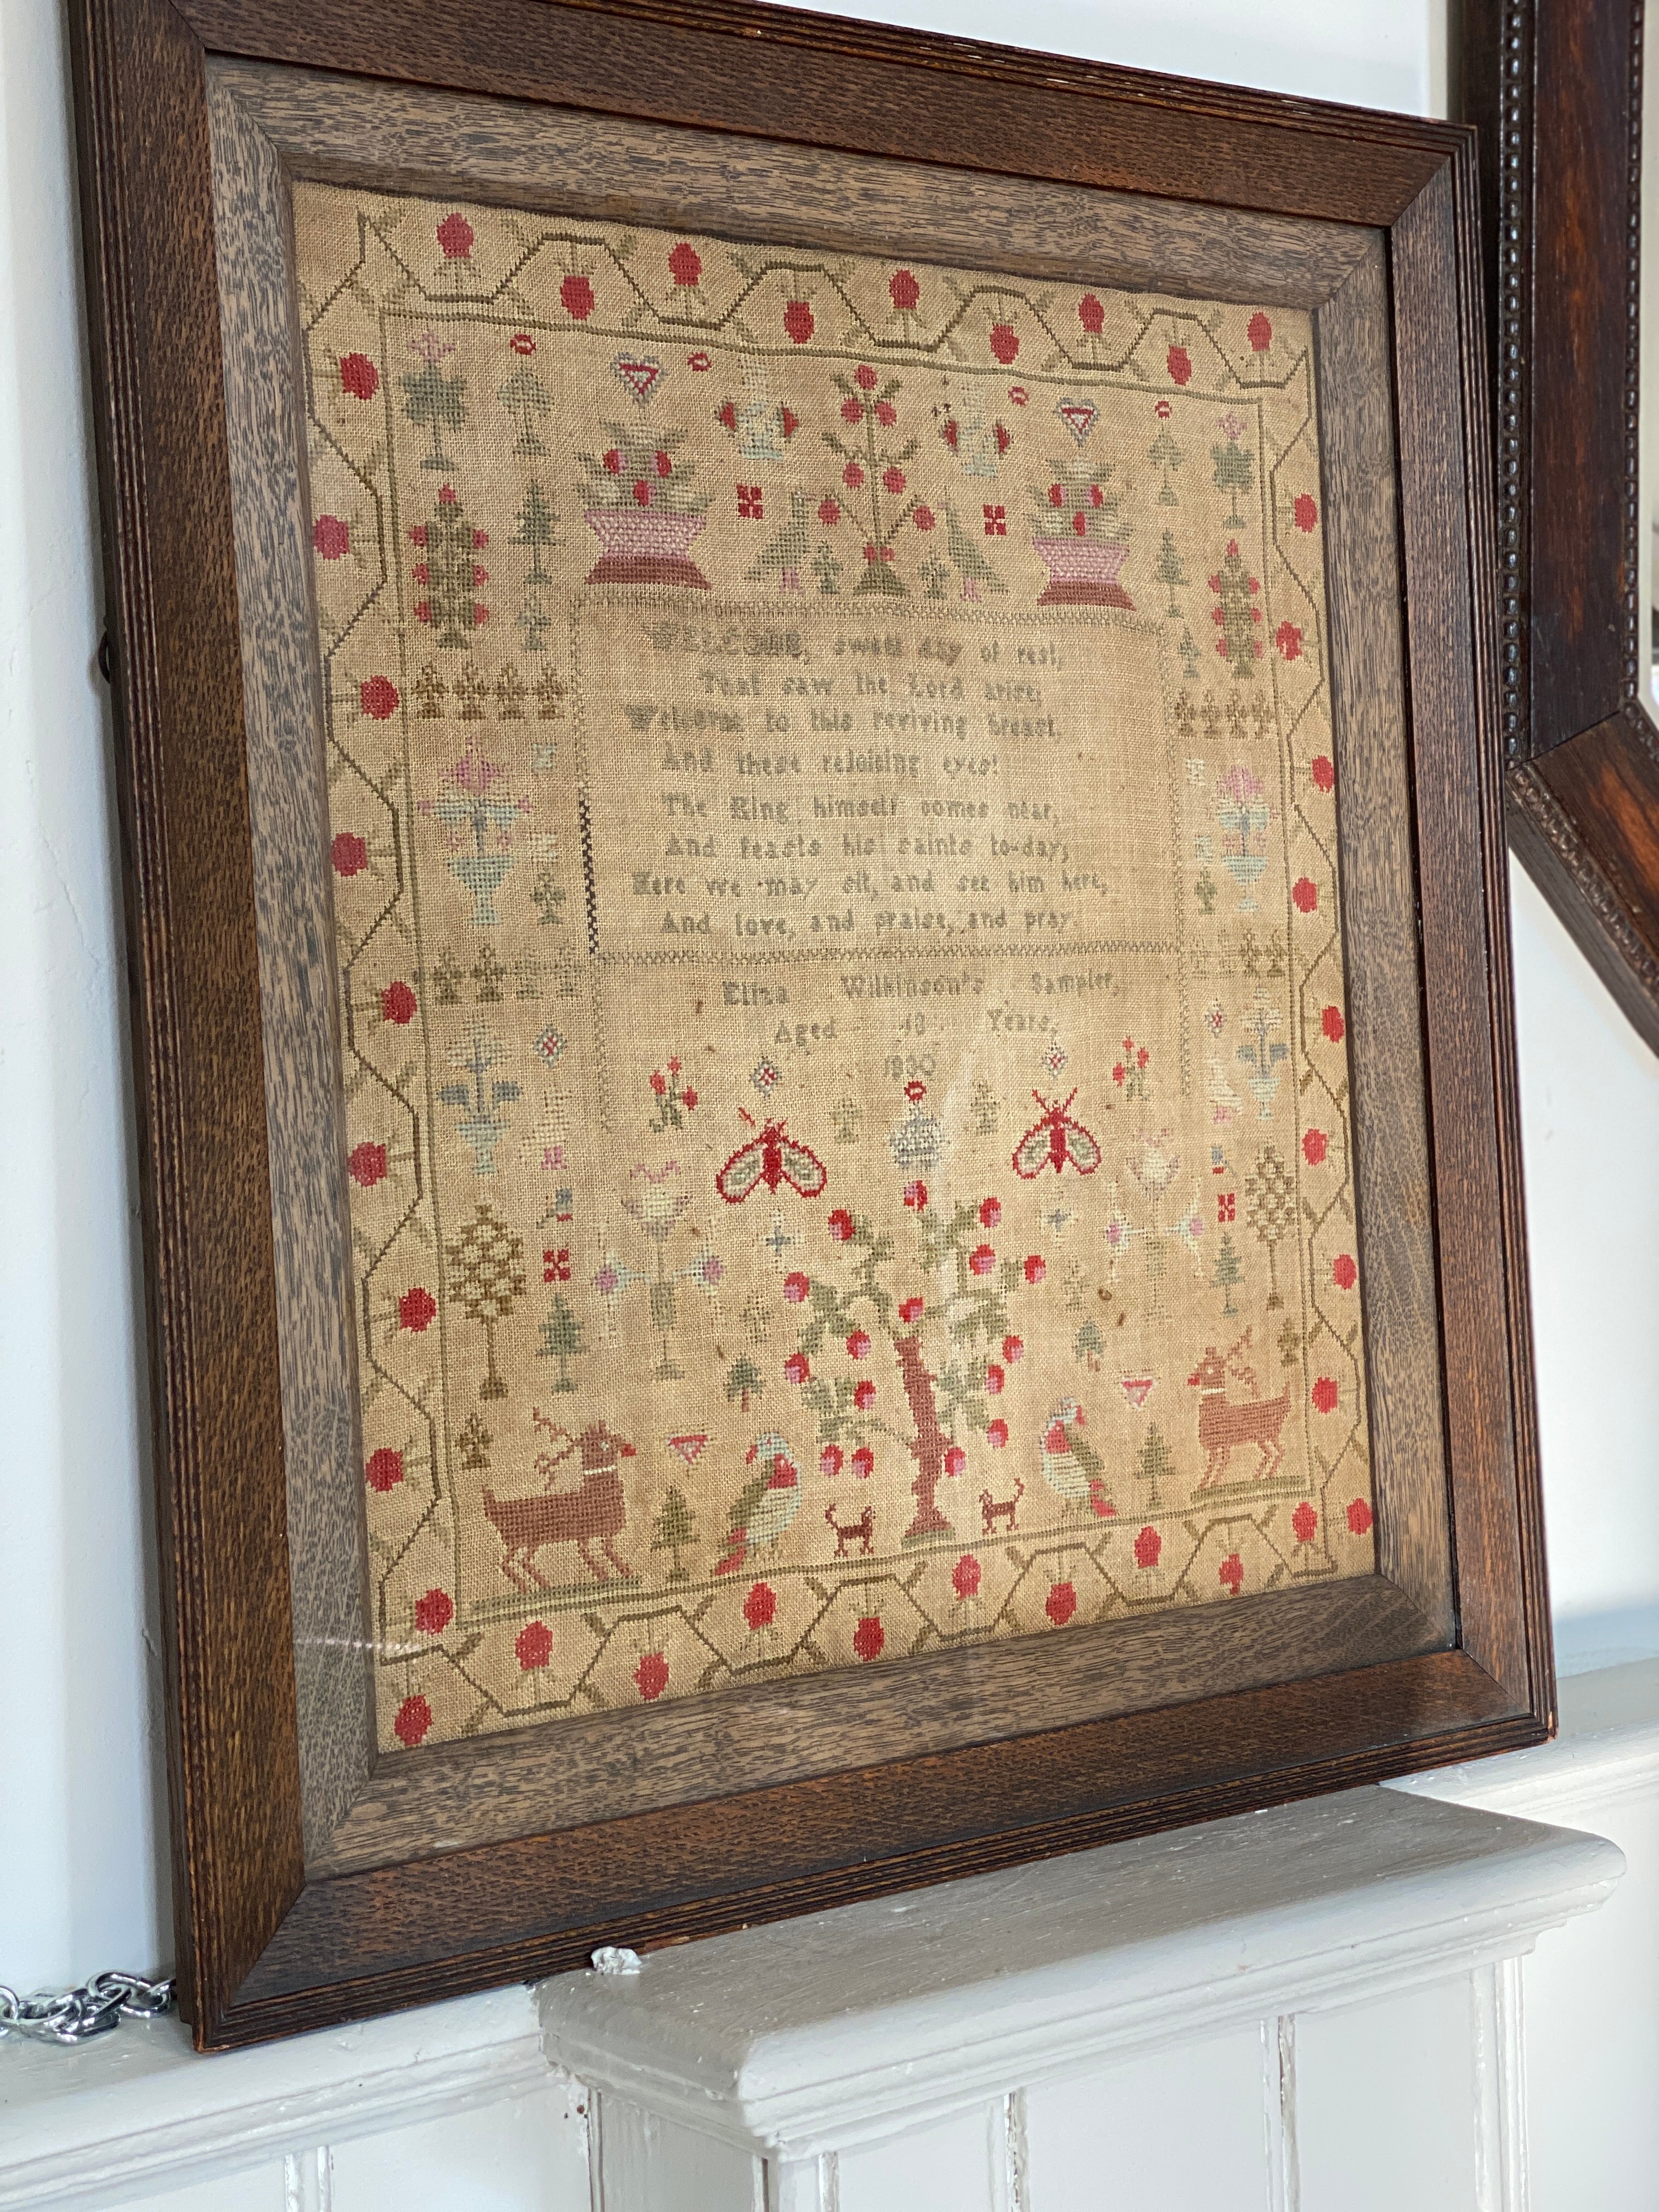 WELCOME, sweet day of rest,
That saw the Lord arise;
Welcome to this reviving breast,
And these rejoicing eyes!
The King himself comes near,
And feasts his saints to-day;
Here we may sit, and see him here,
And love, and praise, and pray.
Eliza Wilkinson's Sampler,
Aged 10 Years,
1830